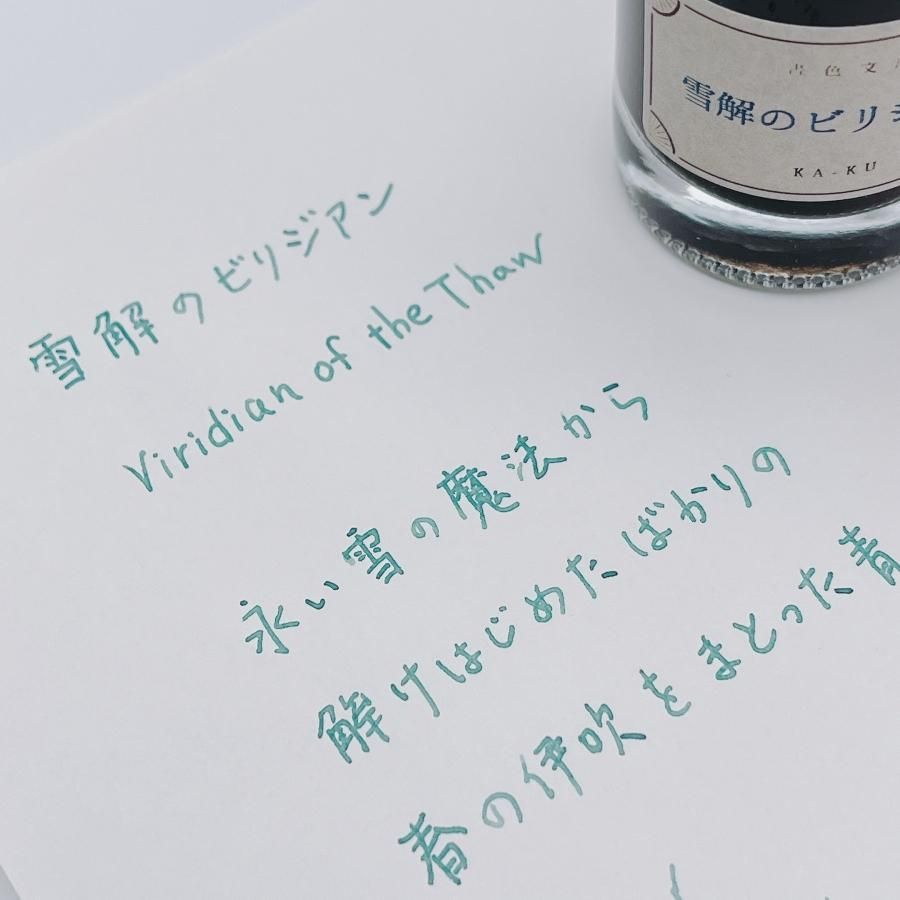 書色文
雪解のビリジ
KA-KU
雪解のビリジアン
Viridian of the Thaw
永い雪の魔法から
解けはじめたばかりの
春の伊吹をまとった青